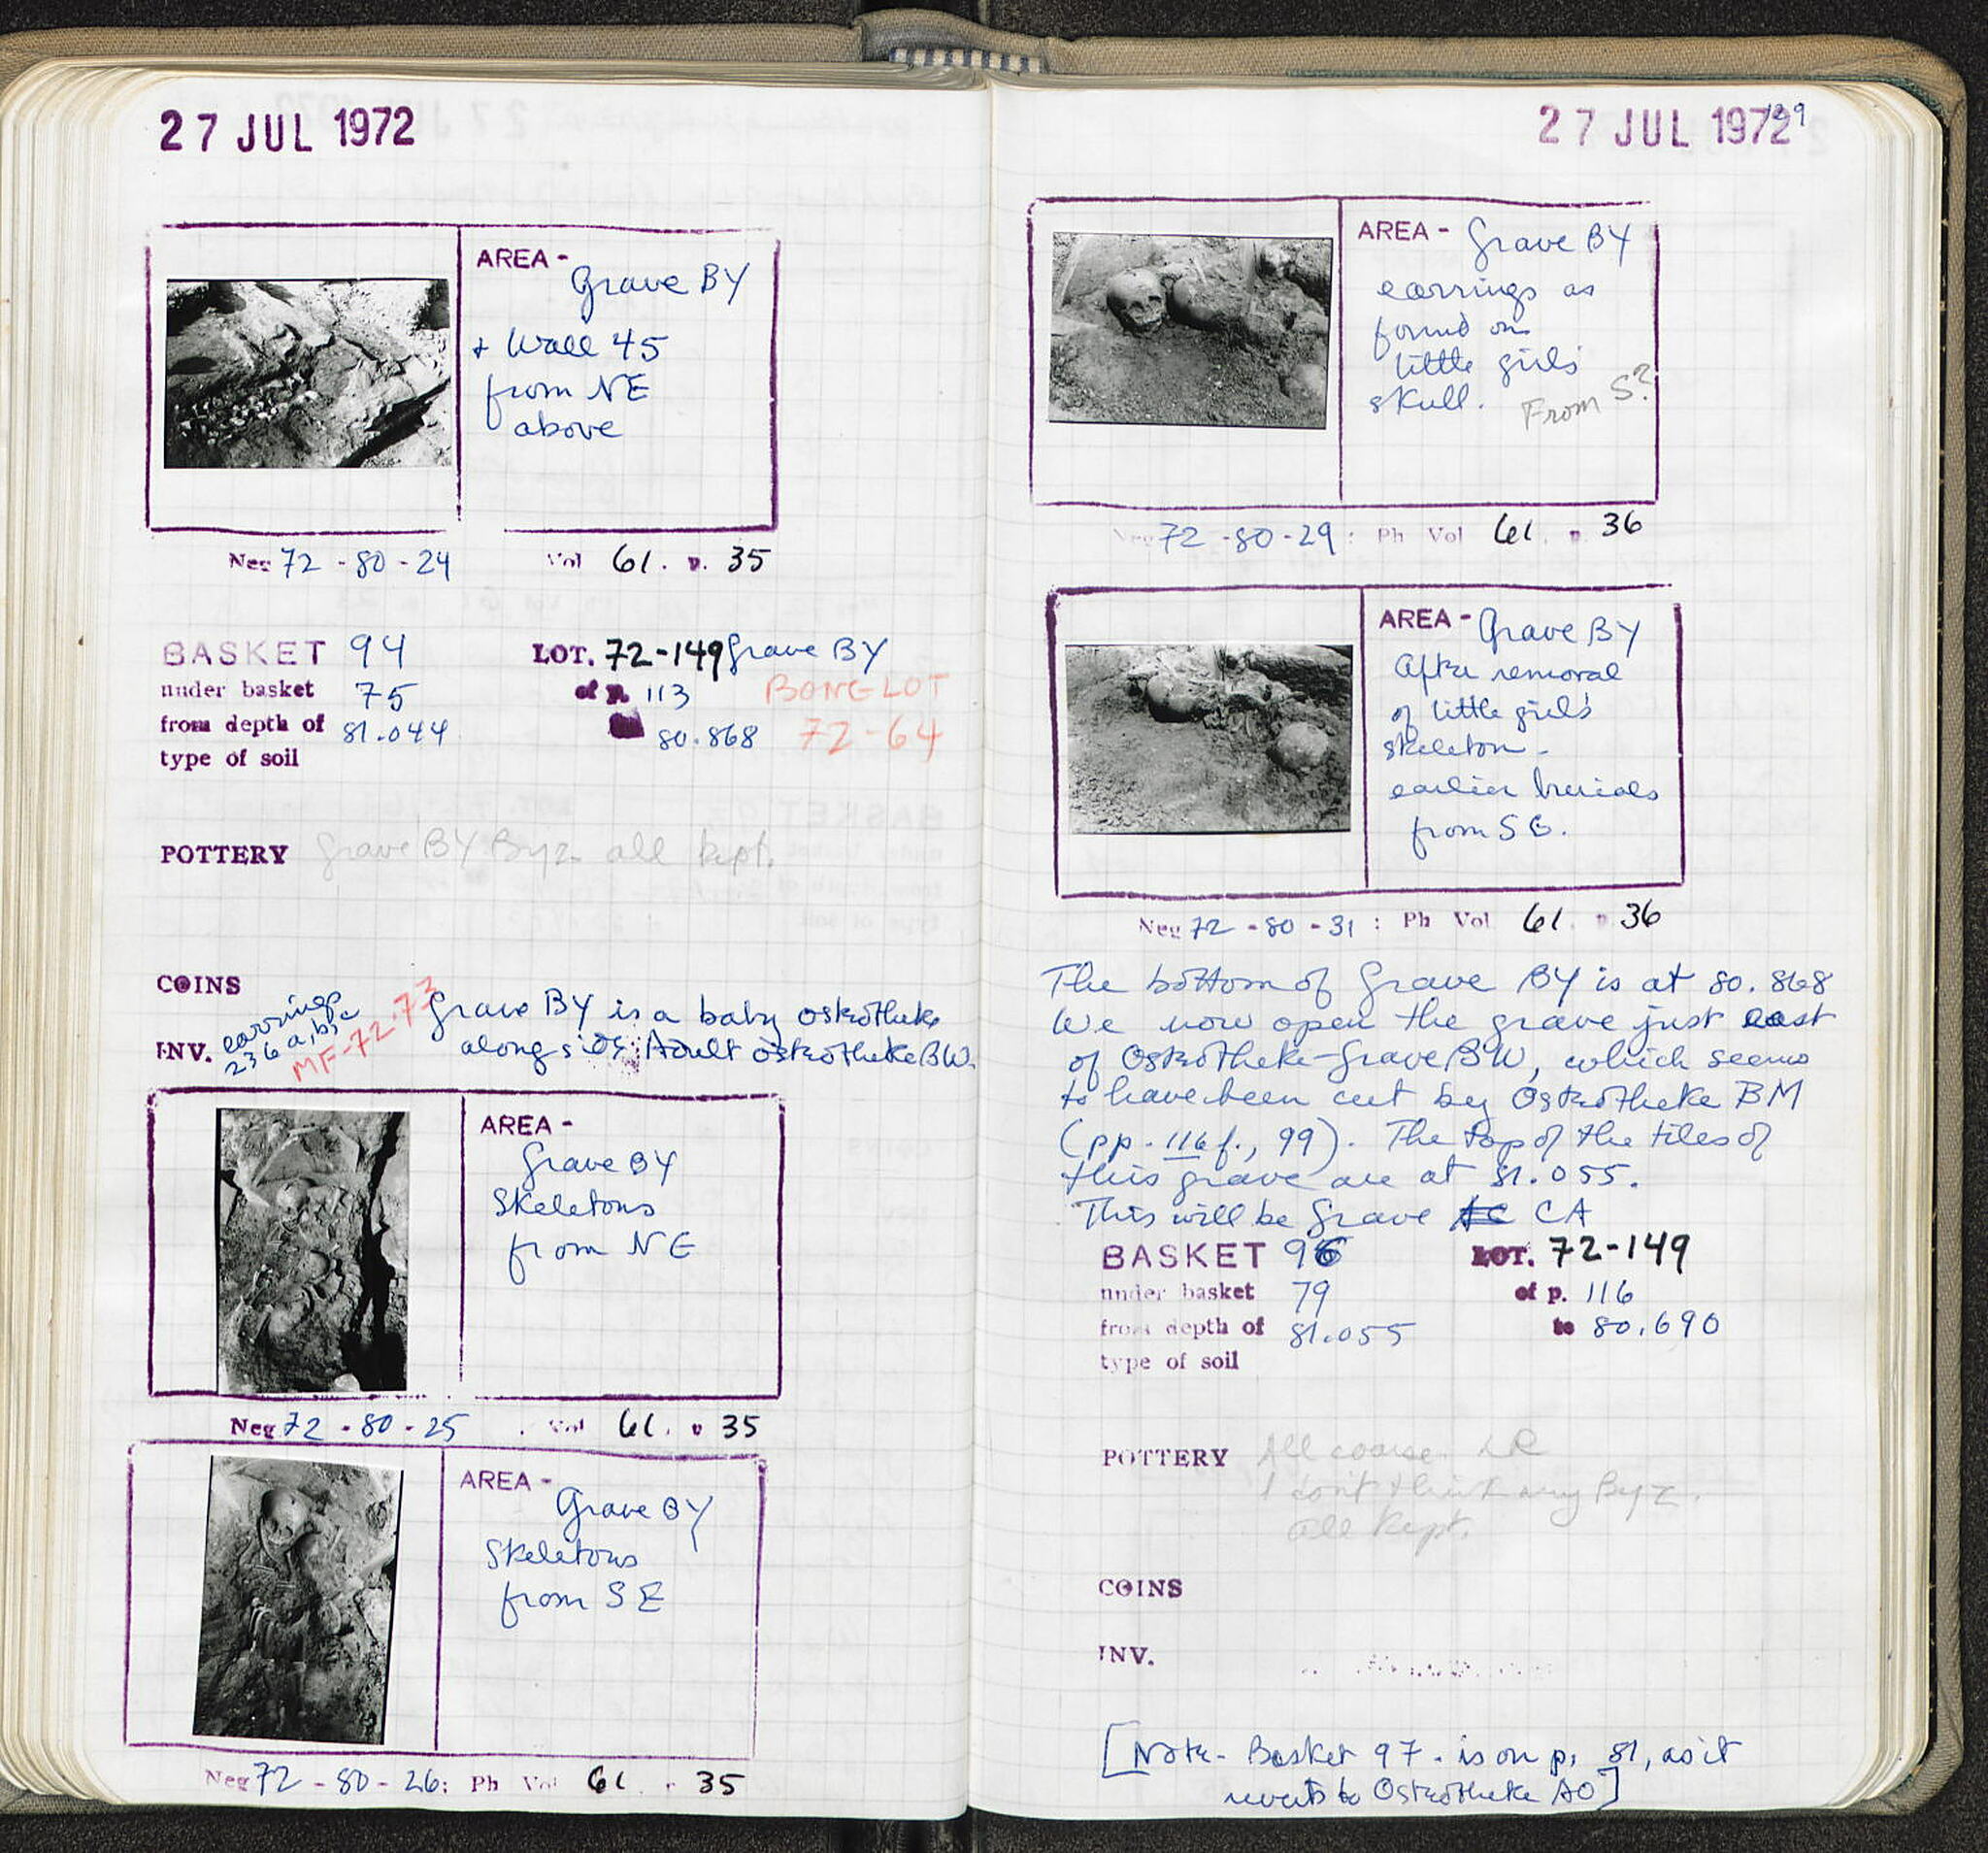 27 JUL 1972
AREA -
Grave BY
+ Wall 45
from NE
above
Neg 72 - 80 - 24 Vol 61. p. 35
BASKET 94 LOT. 72-149 Grave BY
under basket 75 of p. 113 BONE LOT
from depth of 81.044 80.868 72-64
type of soil
POTTERY Grave BY Byz. all kept.
COINS
INV. earrings
236 a, b, c
MF-72-73
Grave BY is a baby osteotheke
alongside Adult osteotheke BW.
AREA -
Grave BY
Skeletons
from NE
Neg 72 - 80 - 25 Vol 61. p 35
AREA -
Grave BY
Skeletons
from SE
Neg 72 - 80 - 26: Ph Vol 61 35
27 JUL 1972
AREA - Grave BY
earrings as
found on
little girls'
skull. From S?
Neg 72 - 80 - 29: Ph Vol 61. p. 36
AREA - Grave BY
After removal
of little girl's
skeleton -
earlier burials
from SE.
Neg 72 - 80 - 31 : Ph Vol 61. p 36
The bottom of Grave BY is at 80.868
We now open the grave just east
of Osteotheke-Grave BW, which seems
to have been cut by Osteotheke BM
(pp. 116 f., 99). The top of the tiles of
this grave are at 81.055.
This will be Grave CA
BASKET 96 LOT. 72-149
under basket 79 of p. 116
from depth of 81.055 to 80.690
type of soil
POTTERY All coarse. LR
I don't think any Byz.
all kept.
COINS
INV.
[Note - Basket 97 - is on p. 81, as it
reverts to Osteotheke AO]